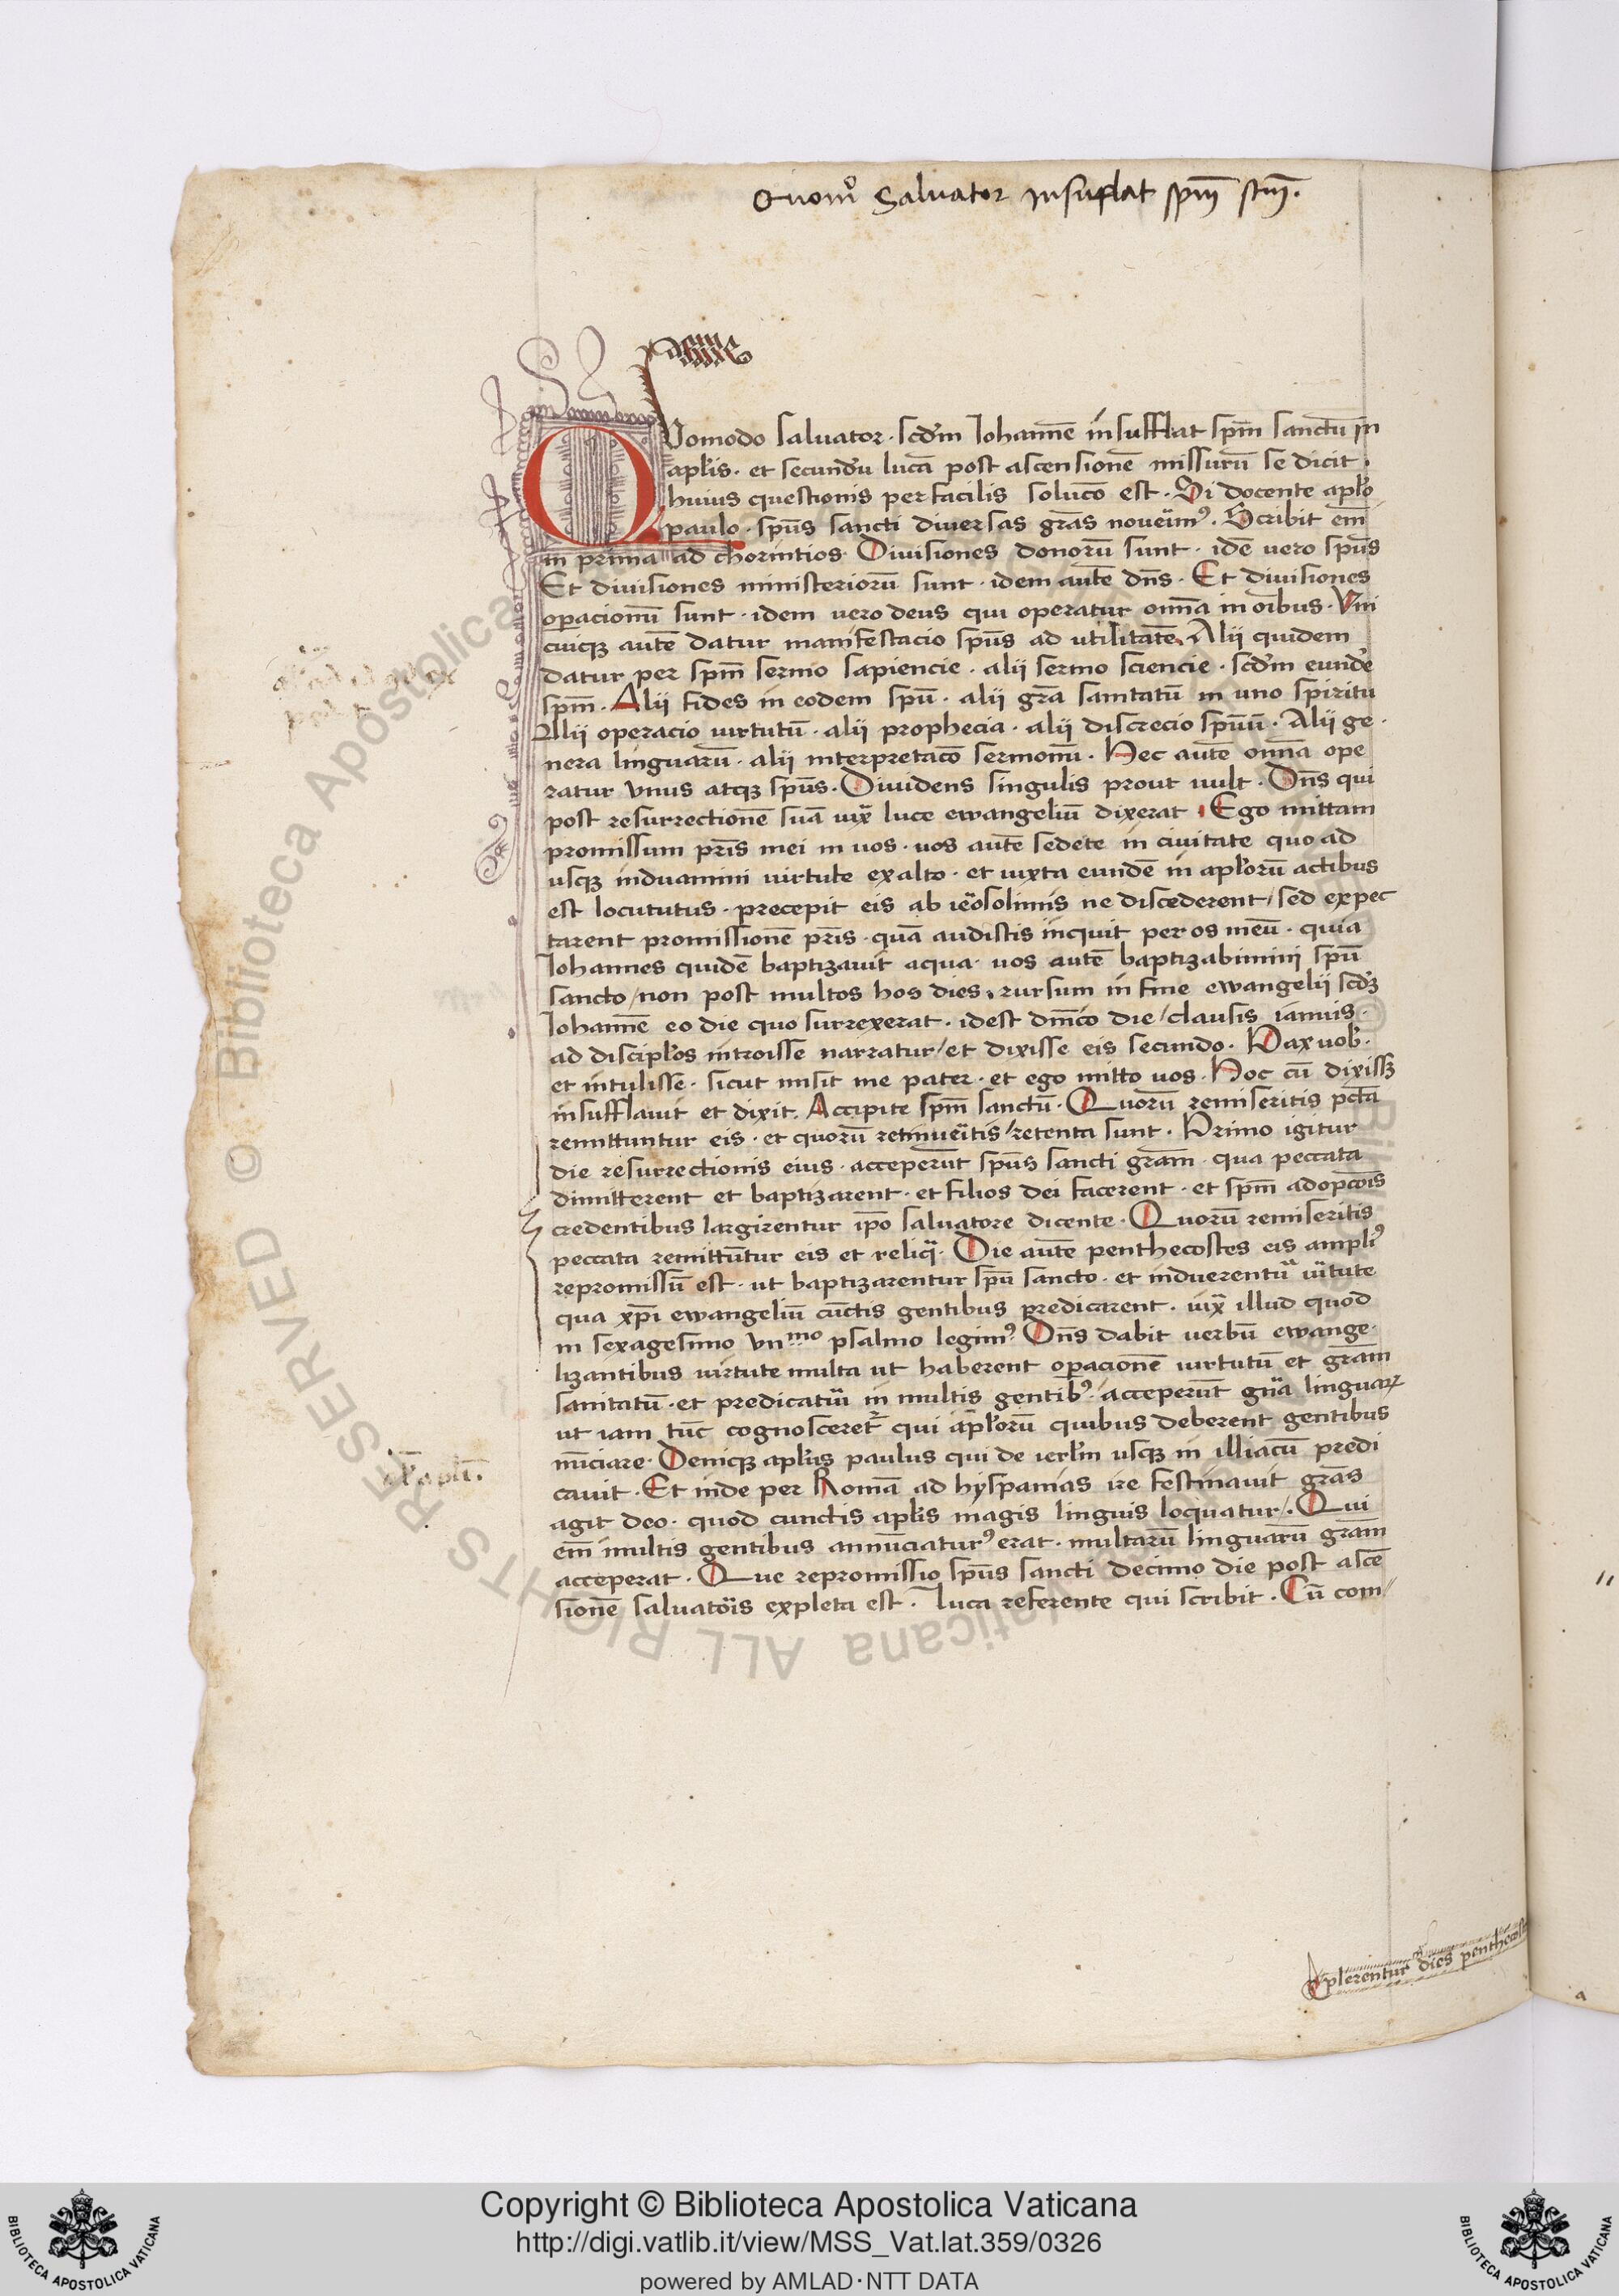 Quom̊ Salvator insuflat spm̄ scm̄.
QVomodo saluator · scd̄m Iohannē insufflat spm̄ sanctū in
apl̄is · et secundū lucā post ascensionē missurū se dicit ·
huius questionis perfacilis soluc̄o est · Si docente apl̄o
paulo · spūs sancti diuersas grās nouerimꝰ · Scribit em̄
in prima ad chorintios · Diuisiones donorū sunt · idē uero spūs
Et diuisiones ministeriorū sunt · idem autē dn̄s · Et diuisiones
opacionū sunt · idem uero deus qui operatur om̄ia in oībus · Vni
cuiqꝫ autē datur manifestacio spūs ad utilitatē. Alii quidem
datur per spm̄ sermo sapiencie · alii sermo sciencie · scd̄m eundē
spm̄ · Alii fides in eodem spū · alii grā sanitatū in uno spiritu
Alii operacio uirtutū · alii prophecia · alii discrecio spūū · Alii ge ·
nera linguarū · alii interpretac̄o sermonū · Hec autē om̄ia ope
ratur vnus atqꝫ spūs · Diuidens singulis prout uult · Dn̄s qui
post resurrectionē suā iuxᷓ luce ewangeliū dixerat · Ego mittam
promissum pr̄is mei in uos · uos autē sedete in ciuitate quo ad
usqꝫ induamini uirtute exalto · et iuxta eundē in apl̄orū actibus
est locututus · precepit eis ab ierosolimis ne discederent / sed expec
tarent promissionē pr̄is · quā audistis inquit per os meū · quia
Iohannes quidē baptizauit aqua · uos autē baptizabimini spū
sancto / non post multos hos dies, rursum in fine ewangelii scd̄ꝫ
Iohannē eo die quo surrexerat · idest dn̄ico die / clausis ianuis ·
ad discipl̄os introisse narratur / et dixisse eis secundo · Pax uob̄ ·
et intulisse · sicut misit me pater · et ego mitto uos · Hoc cū dixissꝫ
insufflauit et dixit. Accipite spm̄ sanctū · Quorū remiseritis pctā
remittuntur eis · et quorū retinueritis / retenta sunt · Primo igitur
die resurrectionis eius · acceperūt spūs sancti grām · qua peccata
dimitterent et baptizarent · et filios dei facerent · et spm̄ adopcōis
credentibus largirentur ip̄o saluatore dicente · Quorū remiseritis
peccata remittūtur eis et reliqᷓ · Die autē penthecostes eis ampliꝰ
repromissū est · ut baptizarentur spū sancto · et induerentuᷓ uirtute
qua xp̄i ewangeliū cūctis gentibus predicarent · iuxᷓ illud quod
in sexagesimo vn mo psalmo legimꝰ · Dn̄s dabit uerbū ewange ·
lizantibus uirtute multa ut haberent opacionē uirtutū et grām
sanitatū · et predicaturi in multis gentibꝰ · acceperūt gnᷓa linguaꝝ
ut iam tūc cognosceretᷣ qui apl̄orū quibus deberent gentibus
nūciare · Deniqꝫ apl̄us paulus qui de ierl̄m usqꝫ in illiacū predi
cauit · Et inde per Romā ad hyspanias ire festinauit grās
agit deo · quod cunctis apl̄is magis linguis loquatur / · Qui
em̄ multis gentibus annūciaturꝰ erat · multarū linguarū grām
acceperat · Que repromissio spūs sancti decimo die post ascē
sionē saluatoris expleta est · luca referente qui scribit · Cū com
plerentur dies penthecost
Copyright © Biblioteca Apostolica Vaticana
http://digi.vatlib.it/view/MSS_Vat.lat.359/0326
powered by AMLAD·NTT DATA
BIBLIOTECA APOSTOLICA VATICANA
BIBLIOTECA APOSTOLICA VATICANA
© Biblioteca Apostolica Vaticana ALL RIGHTS RESERVED